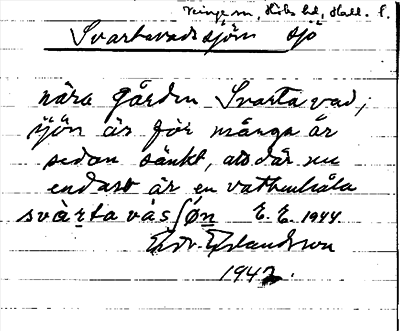 Veinge sn, Höks hd, Hall. l.
Svartavadssjön sjö
nära gården Svartavad;
sjön är för många år
sedan sänkt, så där nu
endast är en vattenhåla
svàrtavàsʃøn E. E. 1944.
Edv. Erlandsson
1942.